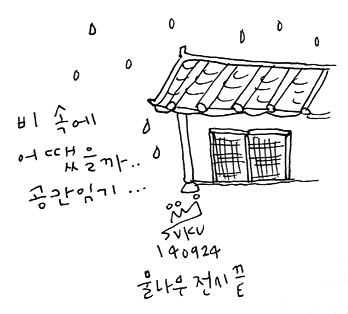 비 속에
어땠을까..
공간읽기...
SVKU
140924
울나우 전시 끝